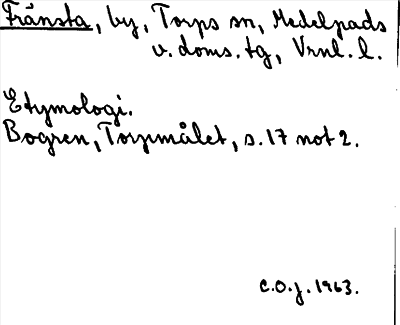 Fränsta, by, Torps sn, Medelpads
v. doms. tg, Vrnl. l.
Etymologi.
Bogren, Torpmålet, s. 17 not 2.
C.O.J. 1963.